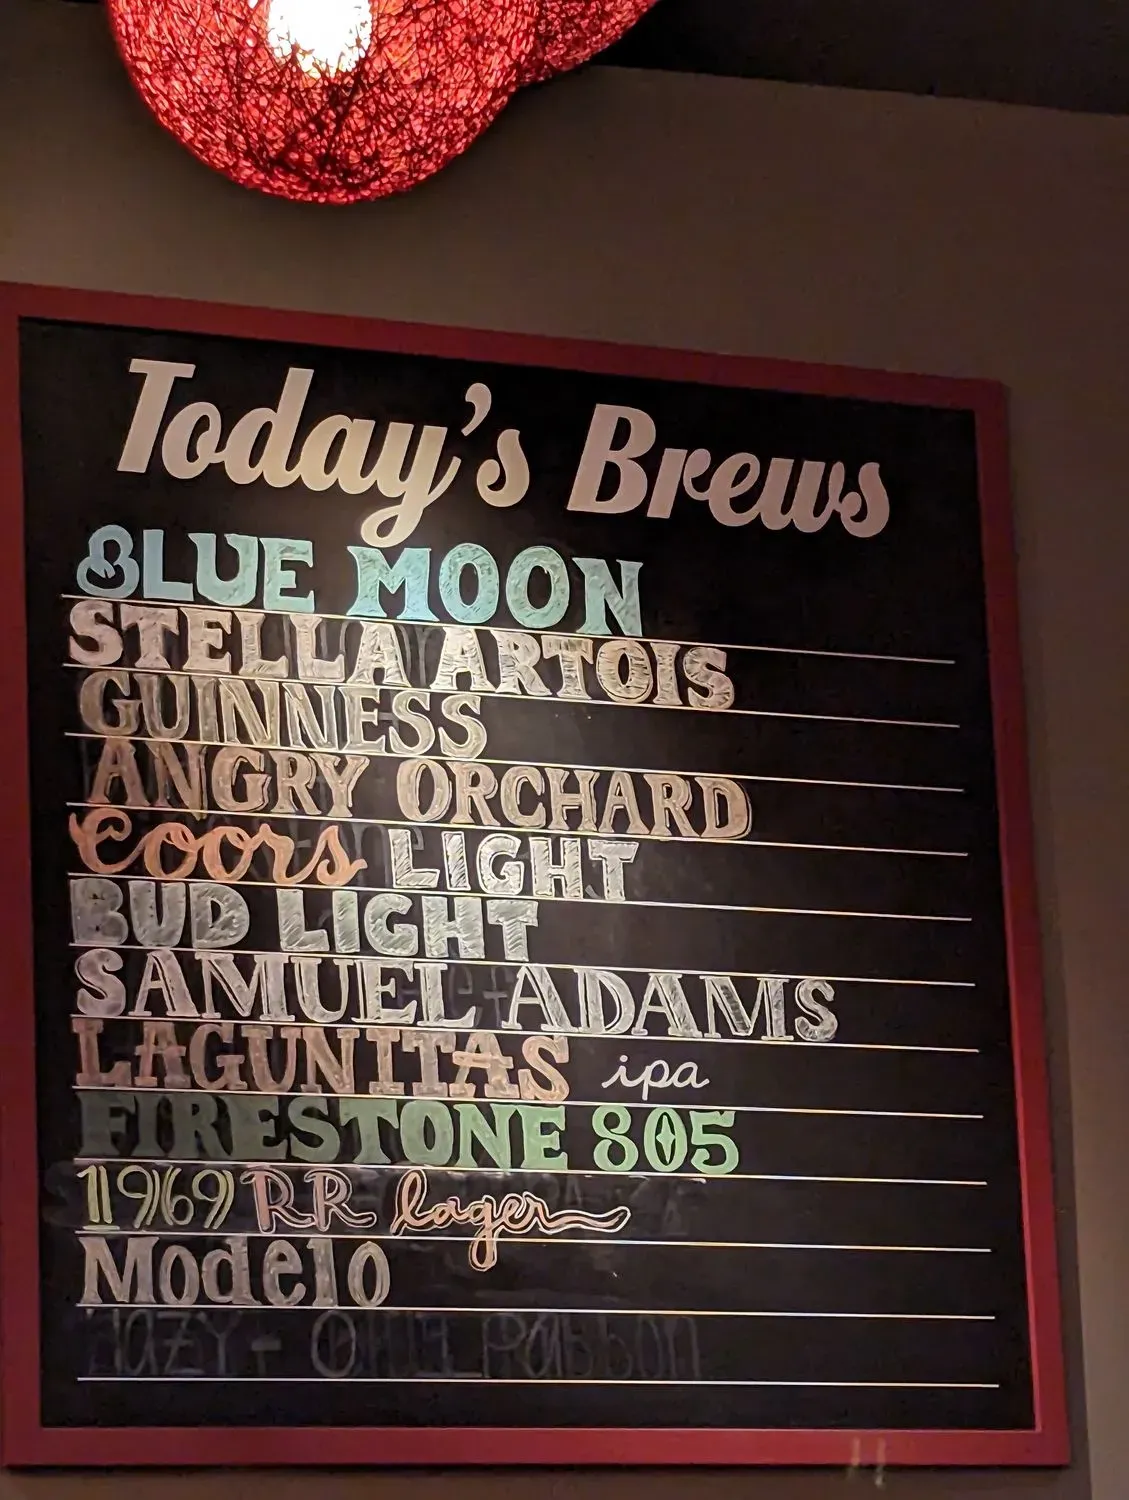 Today's Brews
BLUE MOON
STELLA ARTOIS
GUINNESS
ANGRY ORCHARD
Coors LIGHT
BUD LIGHT
SAMUEL ADAMS
LAGUNITAS ipa
FIRESTONE 805
1969 RR lager
Modelo